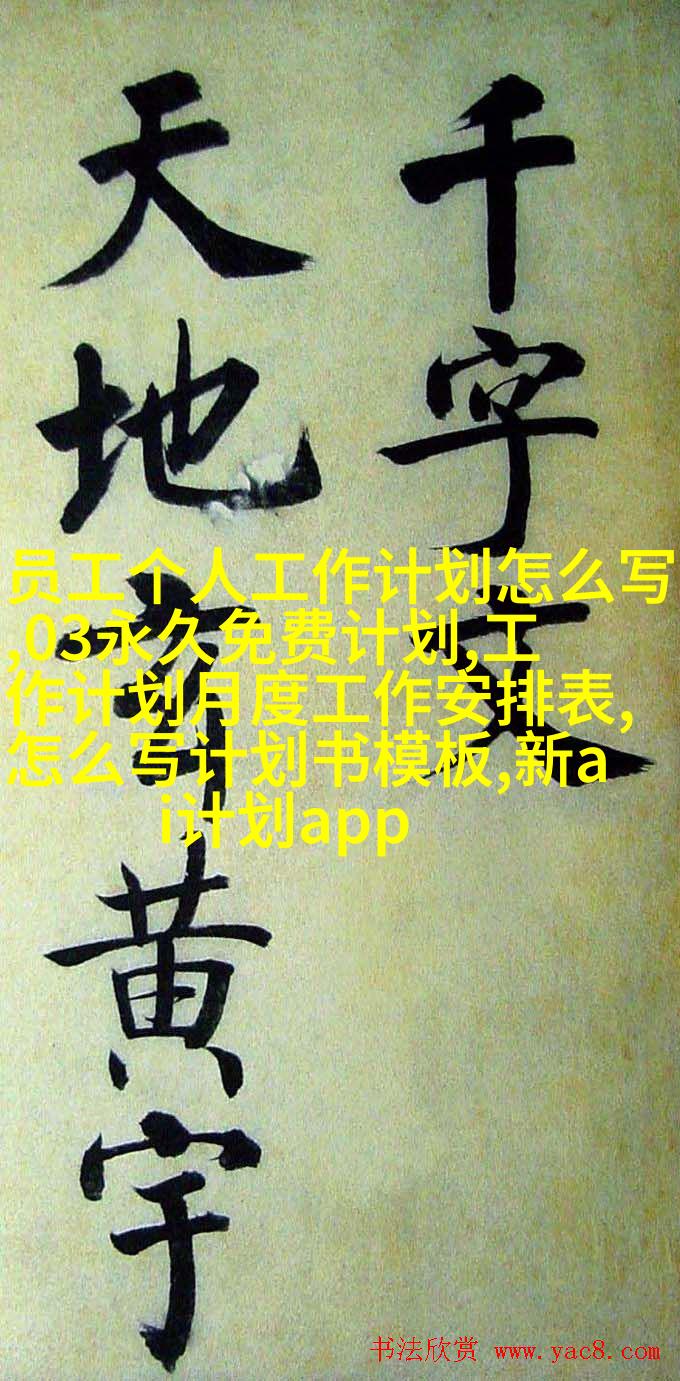 千字文
天地黄宇
员工个人工作计划怎么写
,03永久免费计划,工
作计划月度工作安排表,
怎么写计划书模板,新a
i计划app
书法欣赏 www.yac8.com